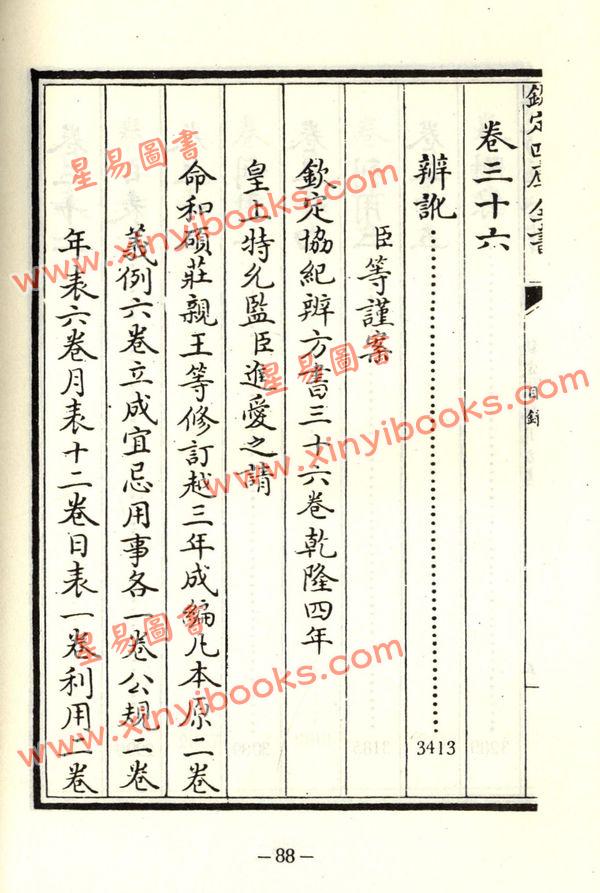 欽定四庫全書
目錄
卷三十六
辨訛……3413
臣等謹案
欽定協紀辨方書三十六卷乾隆四年
皇上特允監臣進愛之請
命和碩莊親王等修訂越三年成編凡本原二卷
義例六卷立成宜忌用事各一卷公規二卷
年表六卷月表十二卷日表一卷利用二卷
－88－
星易圖書
www.xinyibooks.com
星易圖書
www.xinyibooks.com
星易圖書
www.xinyibooks.com